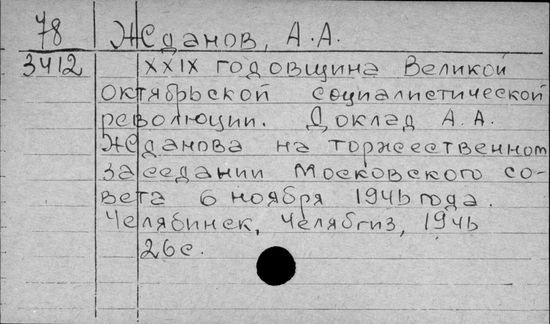 78 Жданов, А.А.
3412 XXIX годовщина Великой
октябрьской социалистической
революции. Доклад А.А.
Жданова на торжественном
заседании Московского со-
вета 6 ноября 1946 года.
Челябинск, Челябгиз, 1946
26с.